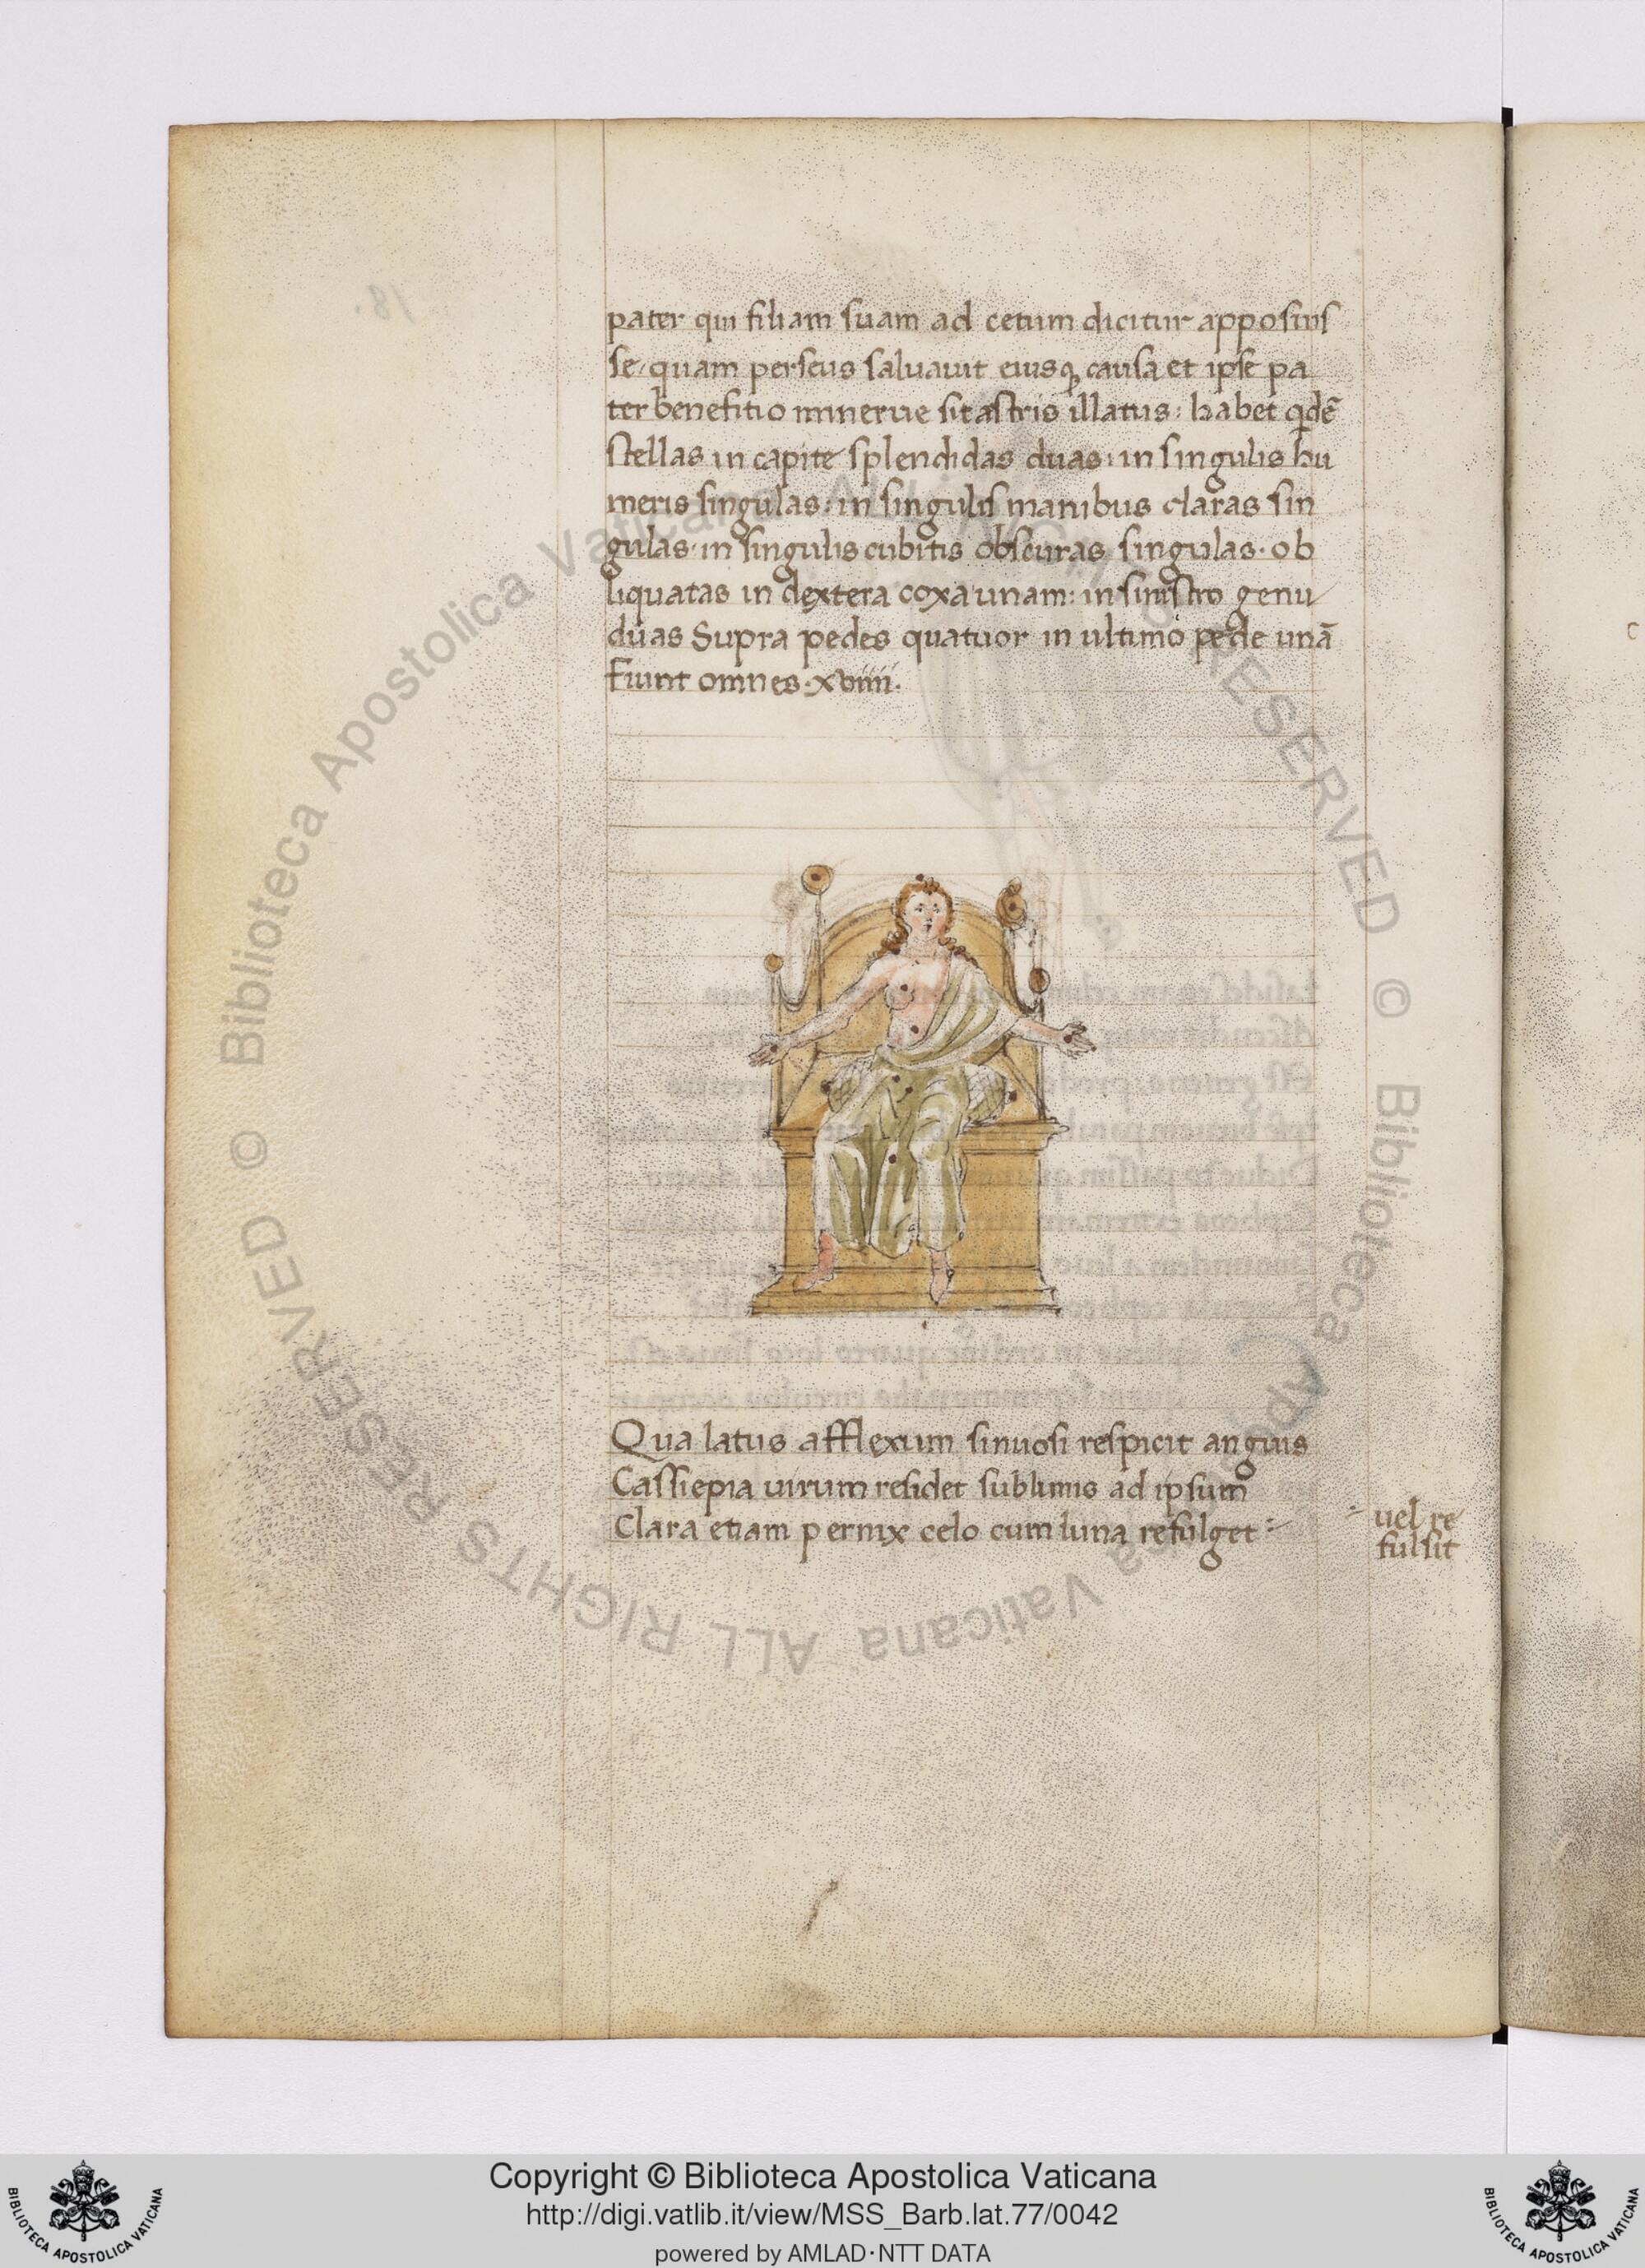 pater qui filiam suam ad cetum dicitur apposuis
se, quam perseus saluauit eiusq; causa et ipse pa
ter benefitio minerue sit astris illatus: habet qdē
stellas in capite splendidas duas: in singulis hu
meris singulas: in singulis manibus claras sin
gulas: in singulis cubitis obscuras singulas. ob
liquatas in dextera coxa unam: in sinistro genu
duas Supra pedes quatuor in ultimo pede unā
Fiunt omnes. xviiii.
Qua latus afflexum sinuosi respicit anguis
Cassiepia uirum residet sublimis ad ipsum
Clara etiam pernix celo cum luna refulget
uel re
fulsit
Biblioteca Apostolica Vaticana ALL RIGHTS RESERVED ©
Copyright © Biblioteca Apostolica Vaticana
http://digi.vatlib.it/view/MSS_Barb.lat.77/0042
powered by AMLAD·NTT DATA
BIBLIOTECA APOSTOLICA VATICANA
BIBLIOTECA APOSTOLICA VATICANA